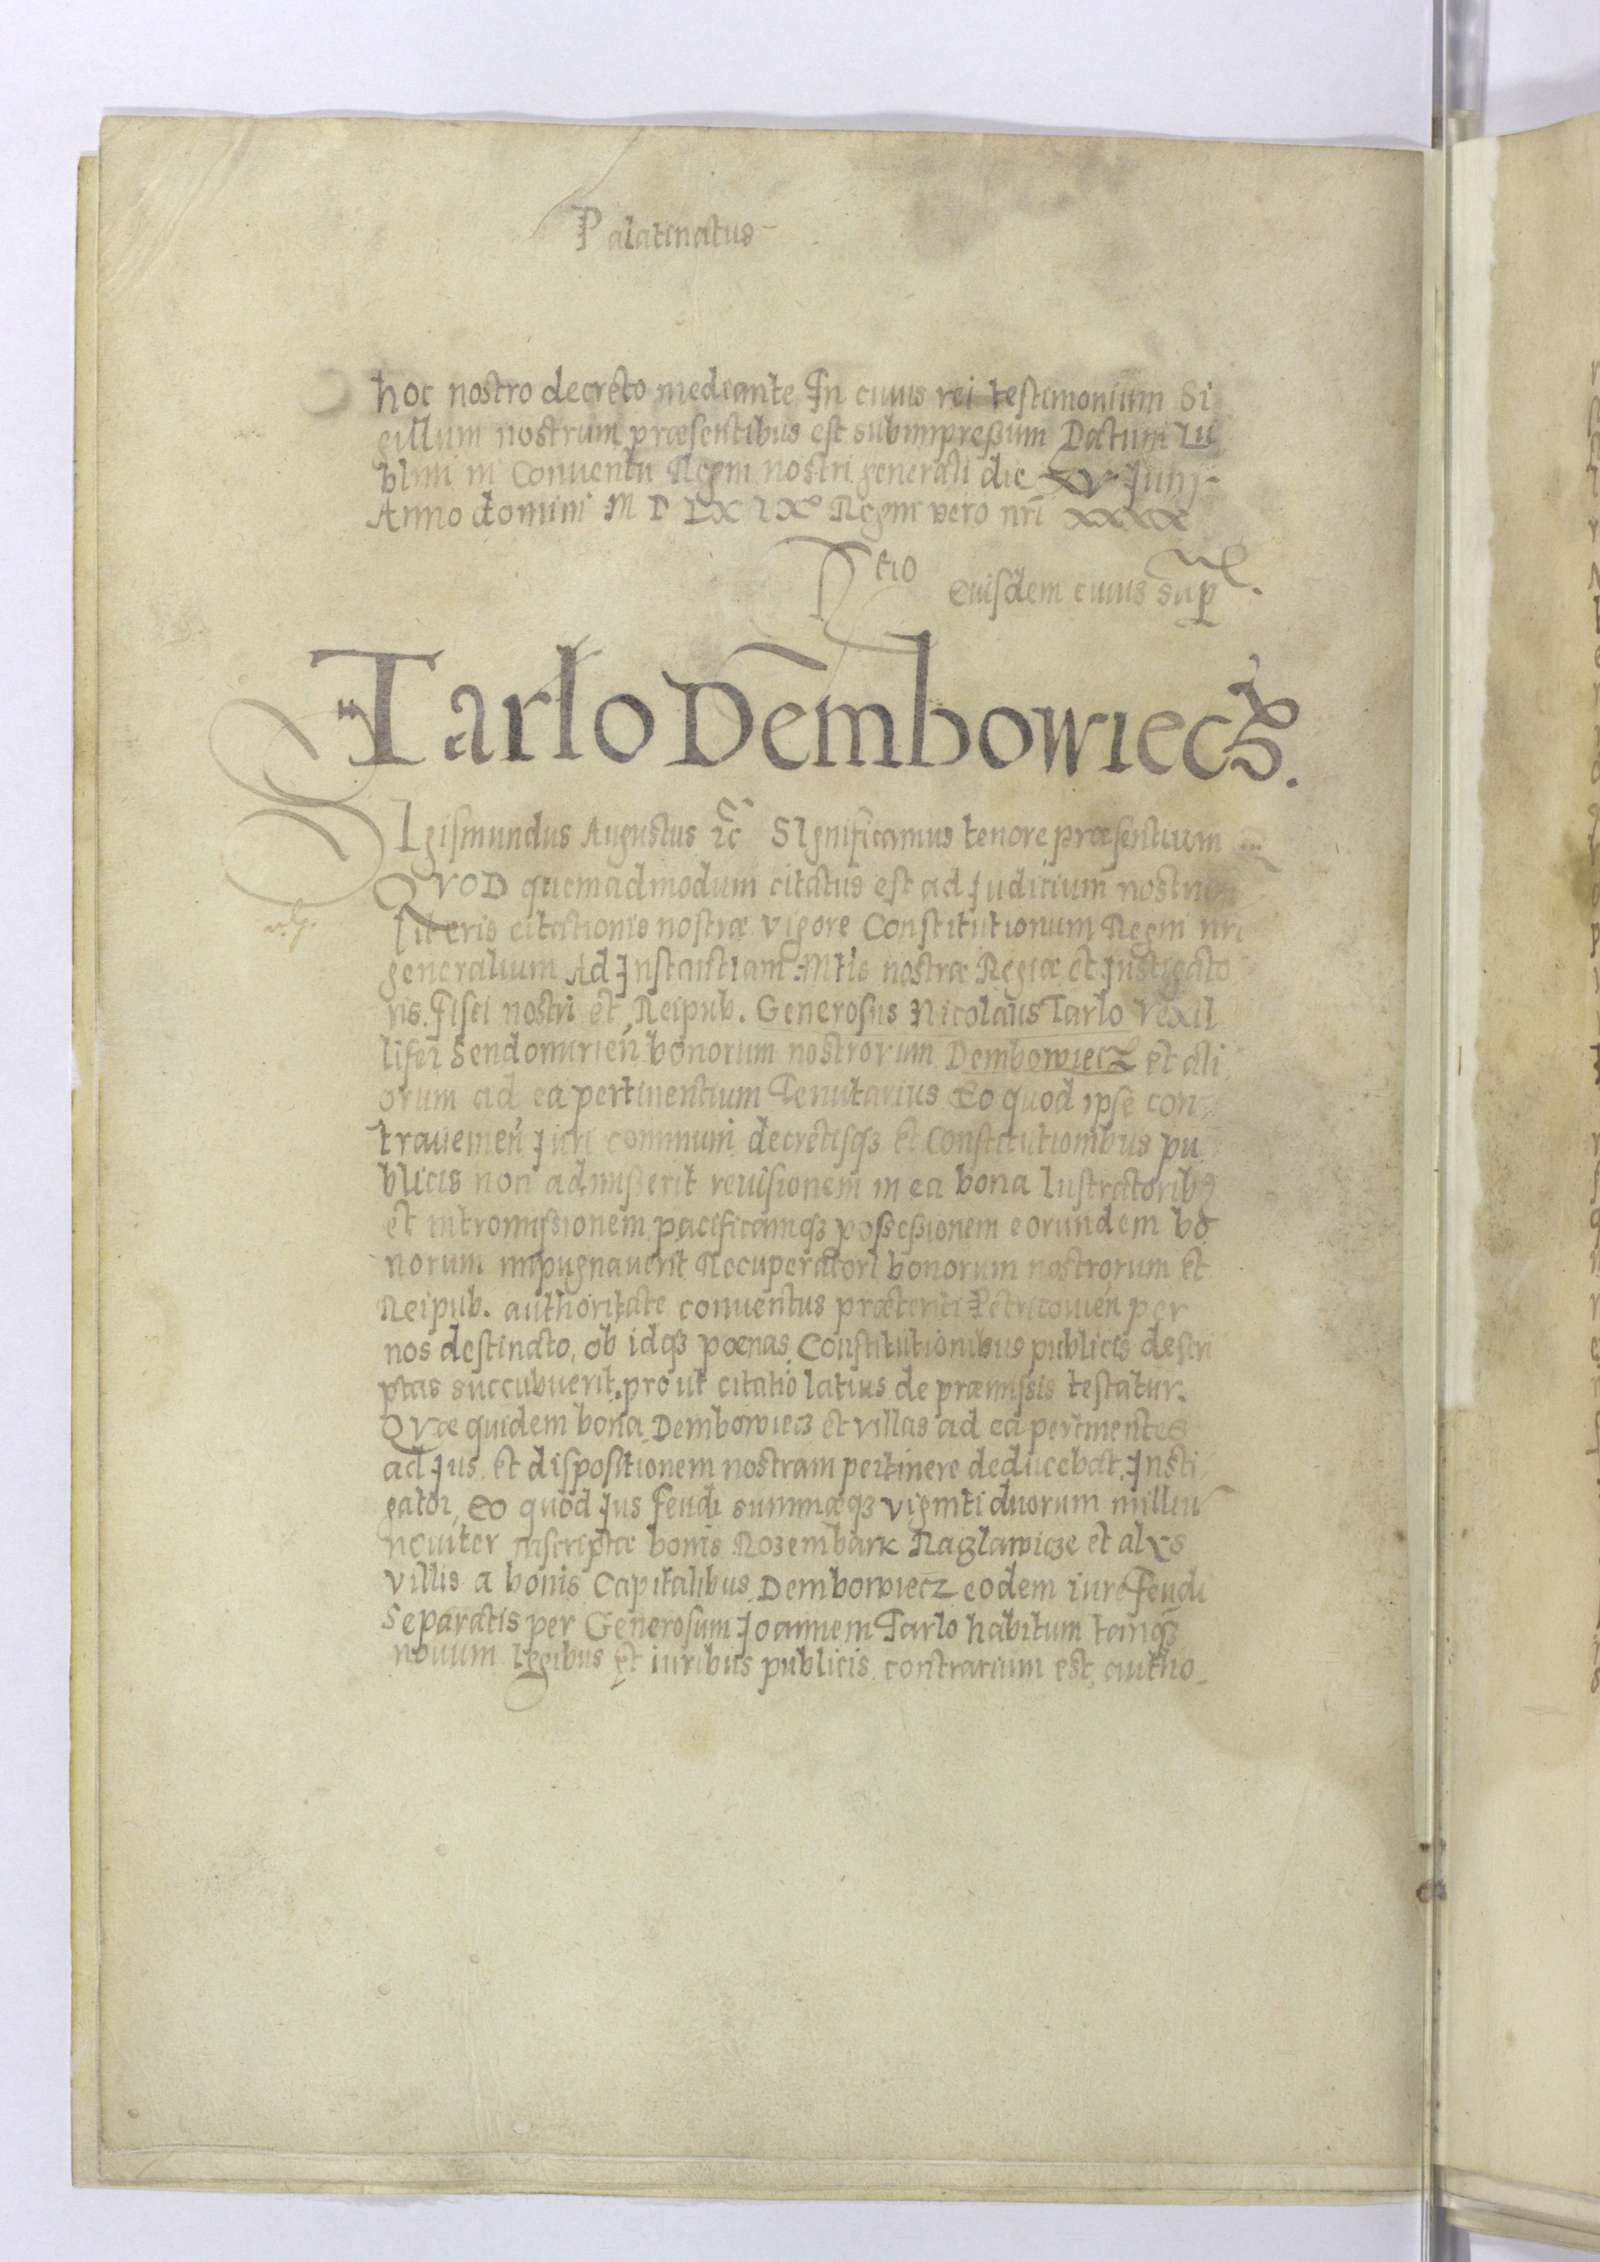 Palatinatus
hoc nostro decreto mediante In cuius rei testimonium Si
gillum nostrum præsentibus est subimpreßum Datum Lu
blini in Conuentu Regni nostri generali die XV Junij
Anno domini M D LX IXº Regni vero nrī XXXX
Rtio Euisdem cuius sup
Tarło Dembowiecz.
SIgismundus Augustus ꝛc̄ SIgnificamus tenore præsentium
QVOD quemadmodum citatus est ad Judicium nostrum
literis citationis nostræ vigore Constitutionum Regni nrī
generalium Ad Instantiam Mtis nostræ Regiæ et Instigato
ris. Fisci nostri et Reipub. Generosus Nicolaus Tarlo Vexil
lifer Sendomirień bonorum nostrorum Dembowiecz et ali
orum ad ea pertinentium Tenutarius Eo quod ipse con
traueniēn Juri communi decretisqꝫ et Constitutionibus pu
blicis non admiserit reuisionem in ea bona lustratoribꝰ
et intromissionem pacificamqꝫ poßeßionem eorundem bo
norum impugnauerit Recuperatori bonorum nostrorum et
Reipub. authoritate conuentus præteriti Petricouień per
nos destinato, ob idqꝫ pœnas Constitutionibus publicis descri
ptas succubuerit. pro ut citatio latius de præmissis testatur.
QVæ quidem bona Dembowiecz et villas ad ea pertinentes
ad Jus et dispositionem nostram pertinere deducebat Insti
gator, Eo quod Jus feudi summæqꝫ viginti duorum milliū
nouiter inscriptæ bonis Rozembark Raclawicze et alys
villis a bonis Capitalibus Dembowiecz eodem iure feudi
Separatis per Generosum Joannem Tarlo habitum tanqꝫ
nouum legibus et iuribus publicis contrarium est, autho